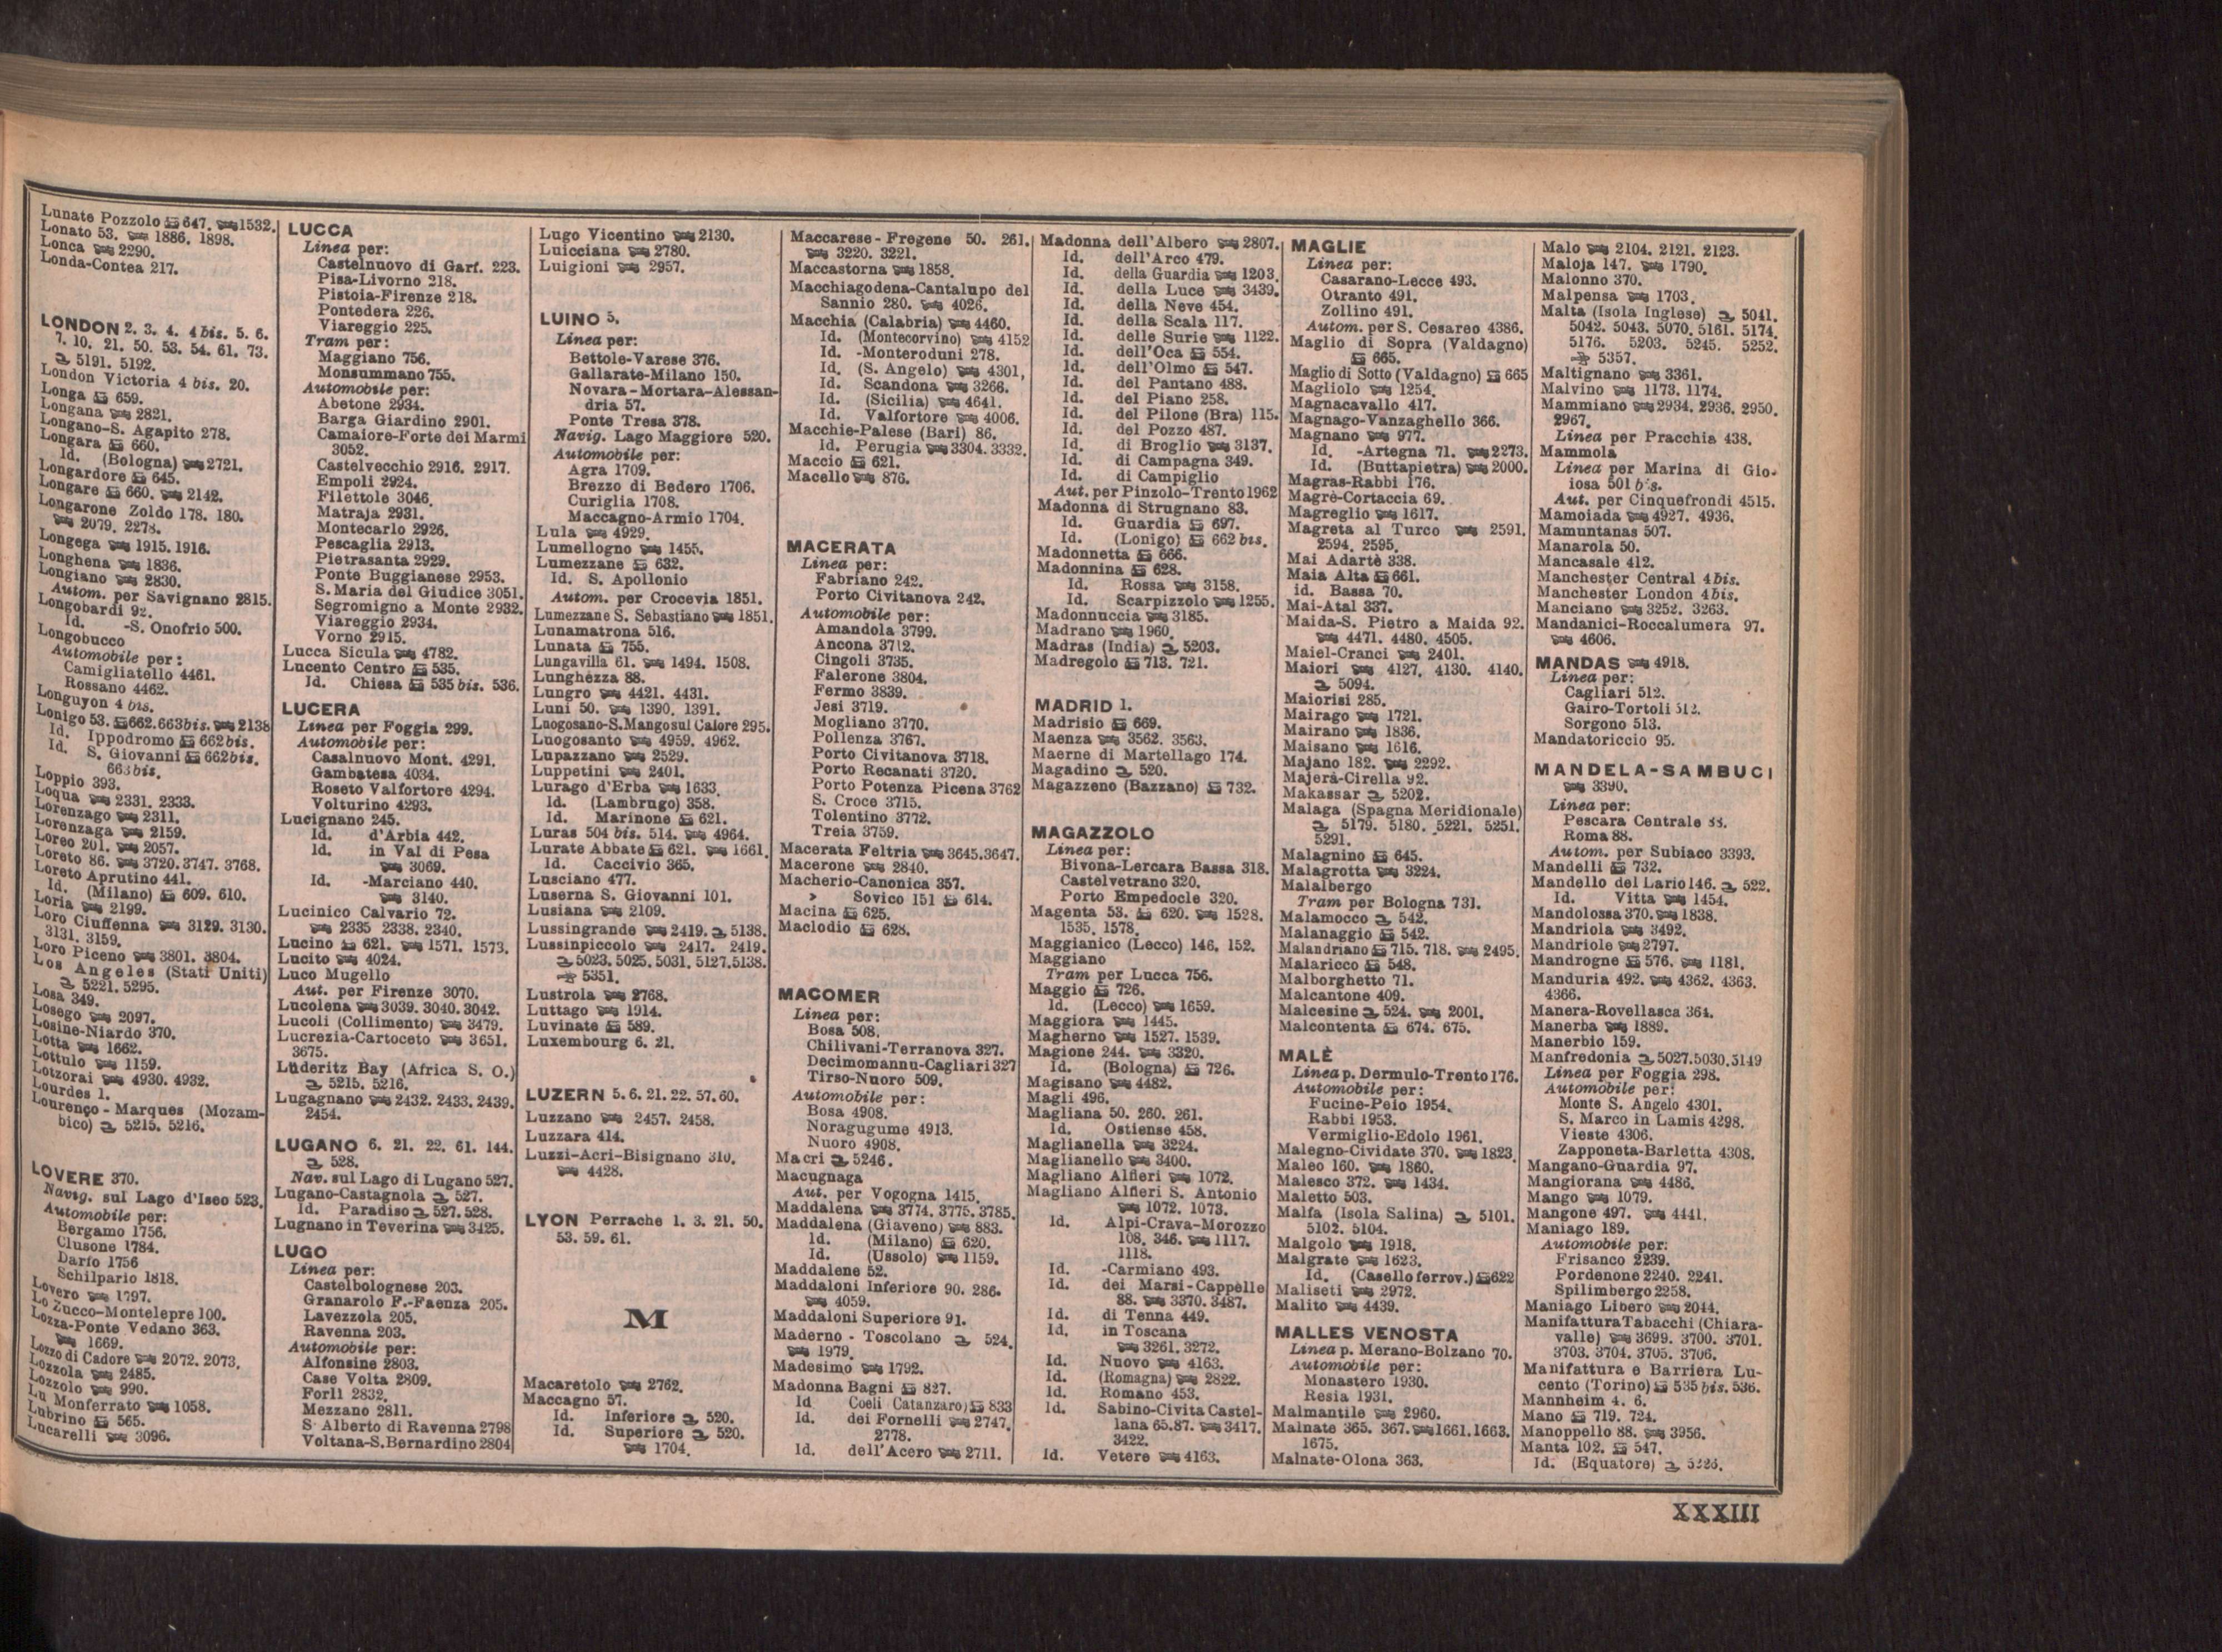 Lunate Pozzolo 647. 1532.
Lonato 53. 1886. 1898.
Lonca 2290.
Londa-Contea 217.
LONDON 2. 3. 4. 4 bis. 5. 6.
7. 10. 21. 50. 53. 54. 61. 73.
5191. 5192.
London Victoria 4 bis. 20.
Longa 659.
Longana 2821.
Longano-S. Agapito 278.
Longara 660.
Id. (Bologna) 2721.
Longardore 645.
Longare 660. 2142.
Longarone Zoldo 178. 180.
2079. 2278.
Longega 1915. 1916.
Longhena 1836.
Longiano 2830.
Autom. per Savignano 2815.
Longobardi 92.
Id. -S. Onofrio 500.
Longobucco
Automobile per:
Camigliatello 4461.
Rossano 4462.
Longuyon 4 bis.
Lonigo 53. 662.663bis. 2138
Id. Ippodromo 662bis.
Id. S. Giovanni 662bis.
663bis.
Loppio 393.
Loqua 2331. 2333.
Lorenzago 2311.
Lorenzaga 2159.
Loreo 201. 2057.
Loreto 86. 3720. 3747. 3768.
Loreto Aprutino 441.
Id. (Milano) 609. 610.
Loria 2199.
Loro Ciuffenna 3129. 3130.
3131. 3159.
Loro Piceno 3801. 3804.
Los Angeles (Stati Uniti)
5221. 5295.
Losa 349.
Losego 2097.
Losine-Niardo 370.
Lotta 1662.
Lottulo 1159.
Lotzorai 4930. 4932.
Lourdes 1.
Lourenço - Marques (Mozam-
bico) 5215. 5216.
LOVERE 370.
Navig. sul Lago d'Iseo 523.
Automobile per:
Bergamo 1756.
Clusone 1784.
Darfo 1756
Schilpario 1818.
Lovero 1797.
Lo Zucco-Montelepre 100.
Lozza-Ponte Vedano 363.
1669.
Lozzo di Cadore 2072. 2073.
Lozzola 2485.
Lozzolo 990.
Lu Monferrato 1058.
Lubrino 565.
Lucarelli 3096.
LUCCA
Linea per:
Castelnuovo di Garf. 223.
Pisa-Livorno 218.
Pistoia-Firenze 218.
Pontedera 226.
Viareggio 225.
Tram per:
Maggiano 756.
Monsummano 755.
Automobile per:
Abetone 2934.
Barga Giardino 2901.
Camaiore-Forte dei Marmi
3052.
Castelvecchio 2916. 2917.
Empoli 2924.
Filettole 3046.
Matraja 2931.
Montecarlo 2926.
Pescaglia 2913.
Pietrasanta 2929.
Ponte Buggianese 2953.
S. Maria del Giudice 3051.
Segromigno a Monte 2932.
Viareggio 2934.
Vorno 2915.
Lucca Sicula 4782.
Lucento Centro 535.
Id. Chiesa 535 bis. 536.
LUCERA
Linea per Foggia 299.
Automobile per:
Casalnuovo Mont. 4291.
Gambatesa 4034.
Roseto Valfortore 4294.
Volturino 4293.
Lucignano 245.
Id. d'Arbia 442.
Id. in Val di Pesa
3069.
Id. -Marciano 440.
3140.
Lucinico Calvario 72.
2335 2338. 2340.
Lucino 621. 1571. 1573.
Lucito 4024.
Luco Mugello
Aut. per Firenze 3070.
Lucolena 3039. 3040. 3042.
Lucoli (Collimento) 3479.
Lucrezia-Cartoceto 3651.
3675.
Lüderitz Bay (Africa S. O.)
5215. 5216.
Lugagnano 2432. 2433. 2439.
2454.
LUGANO 6. 21. 22. 61. 144.
528.
Nav. sul Lago di Lugano 527.
Lugano-Castagnola 527.
Id. Paradiso 527. 528.
Lugnano in Teverina 3425.
LUGO
Linea per:
Castelbolognese 203.
Granarolo F.-Faenza 205.
Lavezzola 205.
Ravenna 203.
Automobile per:
Alfonsine 2803.
Case Volta 2809.
Forlì 2832.
Mezzano 2811.
S Alberto di Ravenna 2798
Voltana-S. Bernardino 2804
Lugo Vicentino 2130.
Luicciana 2780.
Luigioni 2957.
LUINO 5.
Linea per:
Bettole-Varese 376.
Gallarate-Milano 150.
Novara-Mortara-Alessan-
dria 57.
Ponte Tresa 378.
Navig. Lago Maggiore 520.
Automobile per:
Agra 1709.
Brezzo di Bedero 1706.
Curiglia 1708.
Maccagno-Armio 1704.
Lula 4929.
Lumellogno 1455.
Lumezzane 632.
Id. S. Apollonio
Autom. per Crocevia 1851.
Lumezzane S. Sebastiano 1851.
Lunamatrona 516.
Lunata 755.
Lungavilla 61. 1494. 1508.
Lunghezza 88.
Lungro 4421. 4431.
Luni 50. 1390. 1391.
Luogosano-S. Mango sul Calore 295.
Luogosanto 4959. 4962.
Lupazzano 2529.
Luppetini 2401.
Lurago d'Erba 1633.
Id. (Lambrugo) 358.
Id. Marinone 621.
Luras 504 bis. 514. 4964.
Lurate Abbate 621. 1661.
Id. Caccivio 365.
Lusciano 477.
Luserna S. Giovanni 101.
Lusiana 2109.
Lussingrande 2419. 5138.
Lussinpiccolo 2417. 2419.
5023. 5025. 5031. 5127. 5138.
5351.
Lustrola 2768.
Luttago 1914.
Luvinate 589.
Luxembourg 6. 21.
LUZERN 5. 6. 21. 22. 57. 60.
Luzzano 2457. 2458.
Luzzara 414.
Luzzi-Acri-Bisignano 310.
4428.
LYON Perrache 1. 3. 21. 50.
53. 59. 61.
M
Macaretolo 2762.
Maccagno 57.
Id. Inferiore 520.
Id. Superiore 520.
1704.
Maccarese-Fregene 50. 261.
3220. 3221.
Maccastorna 1858.
Macchiagodena-Cantalupo del
Sannio 280. 4026.
Macchia (Calabria) 4460.
Id. (Montecorvino) 4152
Id. -Monteroduni 278.
Id. (S. Angelo) 4301.
Id. Scandona 3266.
Id. (Sicilia) 4641.
Id. Valfortore 4006.
Macchie-Palese (Bari) 86.
Id. Perugia 3304. 3332.
Maccio 621.
Macello 876.
MACERATA
Linea per:
Fabriano 242.
Porto Civitanova 242.
Automobile per:
Amandola 3799.
Ancona 3712.
Cingoli 3735.
Falerone 3804.
Fermo 3839.
Jesi 3719.
Mogliano 3770.
Pollenza 3767.
Porto Civitanova 3718.
Porto Recanati 3720.
Porto Potenza Picena 3762
S. Croce 3715.
Tolentino 3772.
Treia 3759.
Macerata Feltria 3645.3647.
Macerone 2840.
Macherio-Canonica 357.
> Sovico 151 614.
Macina 625.
Maclodio 628.
MACOMER
Linea per:
Bosa 508.
Chilivani-Terranova 327.
Decimomannu-Cagliari 327
Tirso-Nuoro 509.
Automobile per:
Bosa 4908.
Noragugume 4913.
Nuoro 4908.
Macri 5246.
Macugnaga
Aut. per Vogogna 1415.
Maddalena 3774. 3775. 3785.
Maddalena (Giaveno) 883.
Id. (Milano) 620.
Id. (Ussolo) 1159.
Maddalene 52.
Maddaloni Inferiore 90. 286.
4059.
Maddaloni Superiore 91.
Maderno - Toscolano 524.
1979.
Madesimo 1792.
Madonna Bagni 827.
Id Coeli Catanzaro) 833
Id. dei Fornelli 2747.
2778.
Id. dell'Acero 2711.
Madonna dell'Albero 2807.
Id. dell'Arco 479.
Id. della Guardia 1203.
Id. della Luce 3439.
Id. della Neve 454.
Id. della Scala 117.
Id. delle Surie 1122.
Id. dell'Oca 554.
Id. dell'Olmo 547.
Id. del Pantano 488.
Id. del Piano 258.
Id. del Pilone (Bra) 115.
Id. del Pozzo 487.
Id. di Broglio 3137.
Id. di Campagna 349.
Id. di Campiglio
Aut. per Pinzolo-Trento 1962
Madonna di Strugnano 83.
Id. Guardia 697.
Id. (Lonigo) 662 bis.
Madonnetta 666.
Madonnina 628.
Id. Rossa 3158.
Id. Scarpizzolo 1255.
Madonnuccia 3185.
Madrano 1960.
Madras (India) 5203.
Madregolo 713. 721.
MADRID 1.
Madrisio 669.
Maenza 3562. 3563.
Maerne di Martellago 174.
Magadino 520.
Magazzeno (Bazzano) 732.
MAGAZZOLO
Linea per:
Bivona-Lercara Bassa 318.
Castelvetrano 320.
Porto Empedocle 320.
Magenta 53. 620. 1528.
1535. 1578.
Maggianico (Lecco) 146. 152.
Maggiano
Tram per Lucca 756.
Maggio 726.
Id. (Lecco) 1659.
Maggiora 1445.
Magherno 1527. 1539.
Magione 244. 3320.
Id. (Bologna) 726.
Magisano 4482.
Magli 496.
Magliana 50. 260. 261.
Id. Ostiense 458.
Maglianella 3224.
Maglianello 3400.
Magliano Alfieri 1072.
Magliano Alfieri S. Antonio
1072. 1073.
Id. Alpi-Crava-Morozzo
108. 346. 1117.
1118.
Id. -Carmiano 493.
Id. dei Marsi-Cappelle
88. 3370. 3487.
Id. di Tenna 449.
Id. in Toscana
3261. 3272.
Id. Nuovo 4163.
Id. (Romagna) 2822.
Id. Romano 453.
Id. Sabino-Civita Castel-
lana 65.87. 3417.
3422.
Id. Vetere 4163.
MAGLIE
Linea per:
Casarano-Lecce 493.
Otranto 491.
Zollino 491.
Autom. per S. Cesareo 4386.
Maglio di Sopra (Valdagno)
665.
Maglio di Sotto (Valdagno) 665
Magliolo 1254.
Magnacavallo 417.
Magnago-Vanzaghello 366.
Magnano 977.
Id. -Artegna 71. 2273.
Id. (Buttapietra) 2000.
Magras-Rabbi 176.
Magrè-Cortaccia 69.
Magreglio 1617.
Magreta al Turco 2591.
2594. 2595.
Mai Adartè 338.
Maia Alta 661.
id. Bassa 70.
Mai-Atal 337.
Maida-S. Pietro a Maida 92.
4471. 4480. 4505.
Maiel-Cranci 2401.
Maiori 4127. 4130. 4140.
5094.
Maiorisi 285.
Mairago 1721.
Mairano 1836.
Maisano 1616.
Majano 182. 2292.
Majerà-Cirella 92.
Makassar 5202.
Malaga (Spagna Meridionale)
5179. 5180. 5221. 5251.
5291.
Malagnino 645.
Malagrotta 3224.
Malalbergo
Tram per Bologna 731.
Malamocco 542.
Malanaggio 542.
Malandriano 715. 718. 2495.
Malaricco 548.
Malborghetto 71.
Malcantone 409.
Malcesine 524. 2001.
Malcontenta 674. 675.
MALÈ
Linea p. Dermulo-Trento 176.
Automobile per:
Fucine-Peio 1954.
Rabbi 1953.
Vermiglio-Edolo 1961.
Malegno-Cividate 370. 1823.
Maleo 160. 1860.
Malesco 372. 1434.
Maletto 503.
Malfa (Isola Salina) 5101.
5102. 5104.
Malgolo 1918.
Malgrate 1623.
Id. (Casello ferrov.) 622
Maliseti 2972.
Malito 4439.
MALLES VENOSTA
Linea p. Merano-Bolzano 70.
Automobile per:
Monastero 1930.
Resia 1931.
Malmantile 2960.
Malnate 365. 367. 1661.1663.
1675.
Malnate-Olona 363.
Malo 2104. 2121. 2123.
Maloja 147. 1790.
Malonno 370.
Malpensa 1703.
Malta (Isola Inglese) 5041.
5042. 5043. 5070. 5161. 5174.
5176. 5203. 5245. 5252.
5357.
Maltignano 3361.
Malvino 1173. 1174.
Mammiano 2934. 2936. 2950.
2967.
Linea per Pracchia 438.
Mammola
Linea per Marina di Gio-
iosa 501 bis.
Aut. per Cinquefrondi 4515.
Mamoiada 4927. 4936.
Mamuntanas 507.
Manarola 50.
Mancasale 412.
Manchester Central 4bis.
Manchester London 4bis.
Manciano 3252. 3263.
Mandanici-Roccalumera 97.
4606.
MANDAS 4918.
Linea per:
Cagliari 512.
Gairo-Tortoli 512.
Sorgono 513.
Mandatoriccio 95.
MANDELA-SAMBUCI
3390.
Linea per:
Pescara Centrale 88.
Roma 88.
Autom. per Subiaco 3393.
Mandelli 732.
Mandello del Lario 146. 522.
Id. Vitta 1454.
Mandolossa 370. 1838.
Mandriola 3492.
Mandriole 2797.
Mandrogne 576. 1181.
Manduria 492. 4362. 4363.
4366.
Manera-Rovellasca 364.
Manerba 1889.
Manerbio 159.
Manfredonia 5027.5030.5149
Linea per Foggia 298.
Automobile per:
Monte S. Angelo 4301.
S. Marco in Lamis 4298.
Vieste 4306.
Zapponeta-Barletta 4308.
Mangano-Guardia 97.
Mangiorana 4486.
Mango 1079.
Mangone 497. 4441.
Maniago 189.
Automobile per:
Frisanco 2239.
Pordenone 2240. 2241.
Spilimbergo 2258.
Maniago Libero 2044.
Manifattura Tabacchi (Chiara-
valle) 3699. 3700. 3701.
3703. 3704. 3705. 3706.
Manifattura e Barriera Lu-
cento (Torino) 535 bis. 536.
Mannheim 4. 6.
Mano 719. 724.
Manoppello 88. 3956.
Manta 102. 547.
Id. (Equatore) 5226.
XXXIII